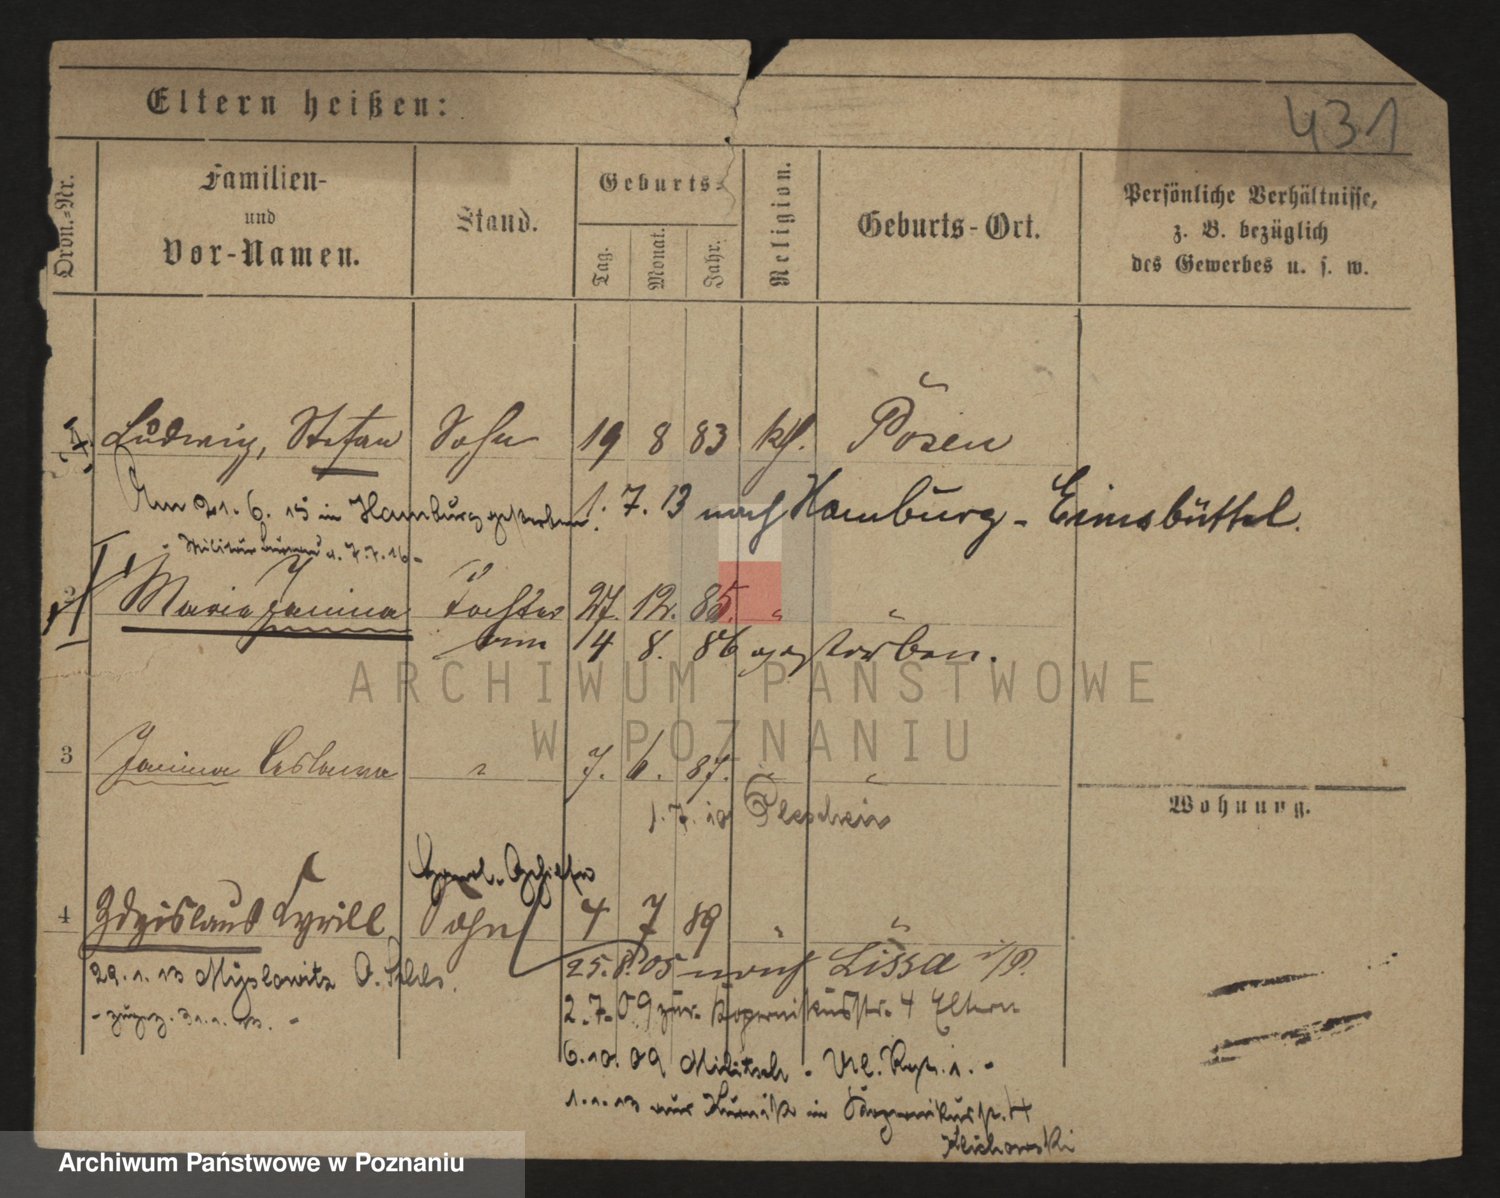 Eltern heißen:
431
Ordn.-Nr.
Familien-
und
Vor-Namen.
Stand.
Geburts-
Tag.
Monat.
Jahr.
Religion.
Geburts-Ort.
Persönliche Verhältnisse,
z. B. bezüglich
des Gewerbes u. s. w.
Ludwig, Stefan Sohn 19 8 83 kth. Posen
Am 21. 6. 15 in Hamburg gestorben. 1. 7. 13 nach Hamburg-Eimsbüttel.
2 Maria Janina Tochter 27. 12. 85. " "
am 14 8. 86 gestorben.
ARCHIWUM PAŃSTWOWE
W POZNANIU
3 Janina Ceslawa " 7. 6. 87. " "
1. 7. 10 Pleschen
Wohnung.
4 Zdzislaus Cyrill Sohn 4 7 89 " "
25. 8. 05 nach Lissa i/P.
29. 1. 13 Myslowitz O. Schles.
2. 7. 09 zur. Kopernikusstr. 4 Eltern
- 31. 1. 13. -
6. 10. 09 Militsch -
1. 1. 13 aus Kurnik in Kopernikusstr. 4
Archiwum Państwowe w Poznaniu